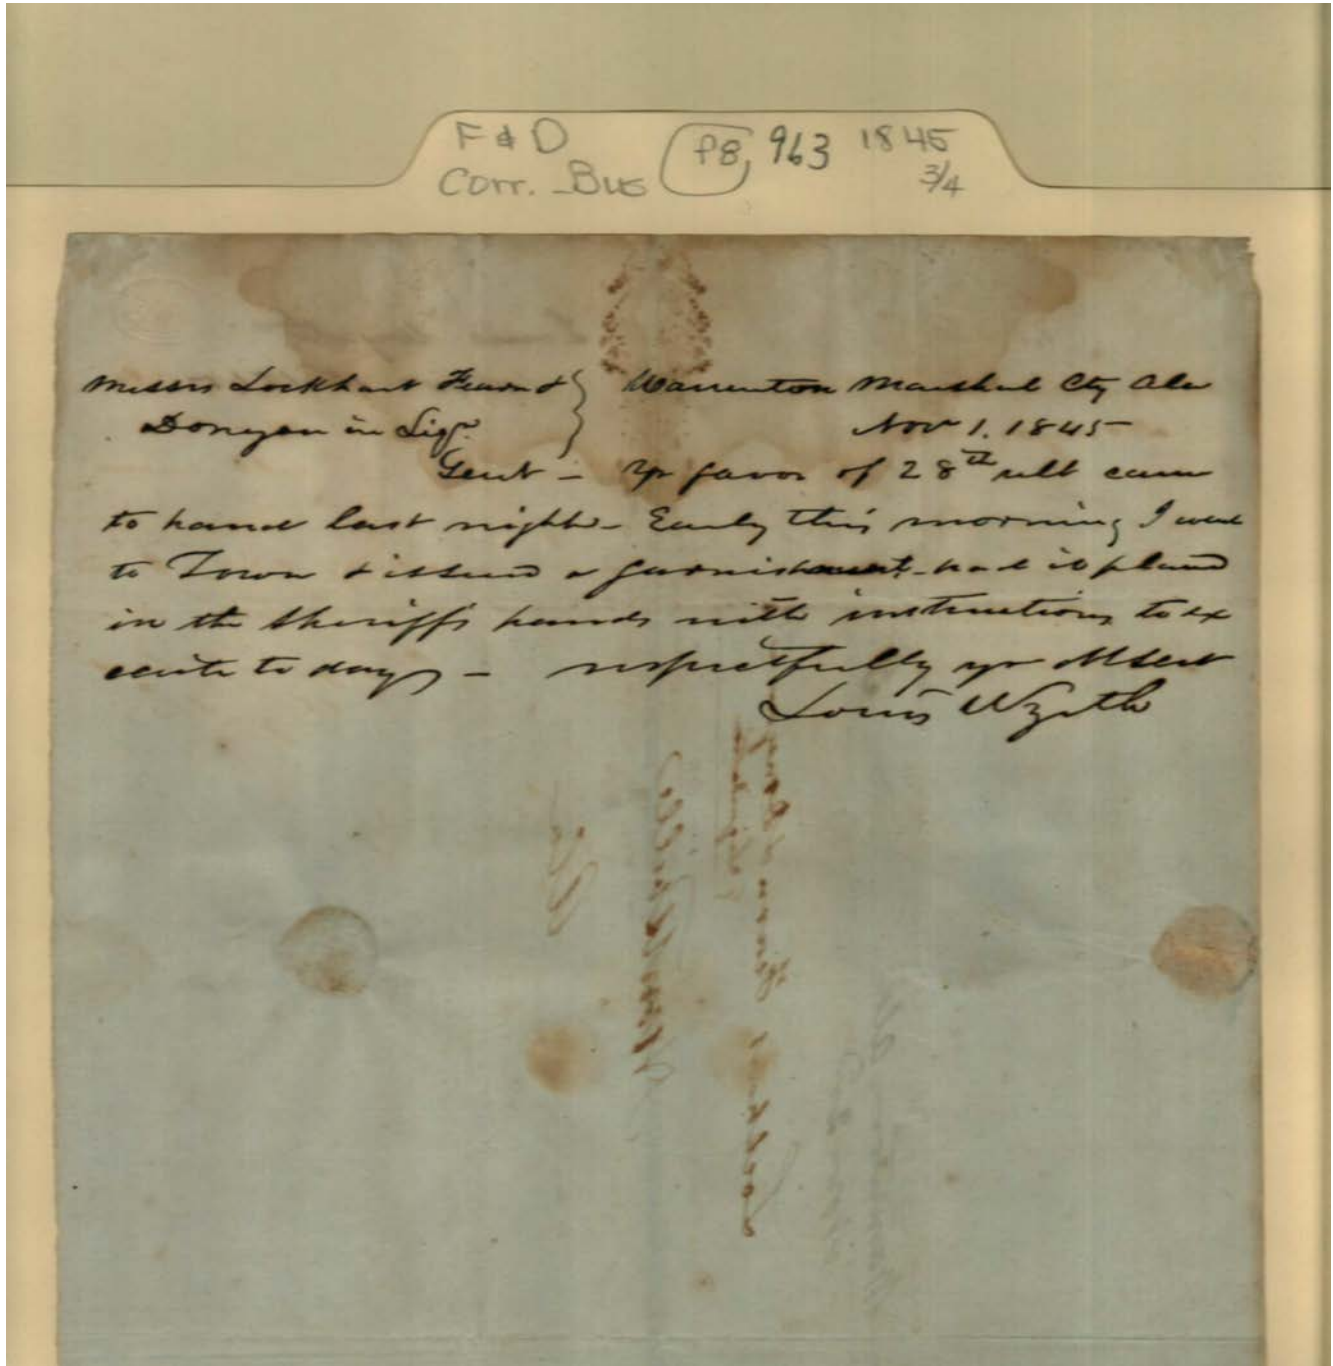 F & D
Corr. - Bus P8, 963 1845
3/4
Messrs Lockhart Fearn & } Warrenton Marshal Cty Ala
Donegan in Liqn. Nov 1. 1845
Gent - Yr favor of 28th ult came
to hand last night - Early this morning I went
to Town & issued a garnishment - had it placed
in the Sheriffs hands with instructions to ex
ecute to day - respectfully yr obt Sert
Louis Wyeth